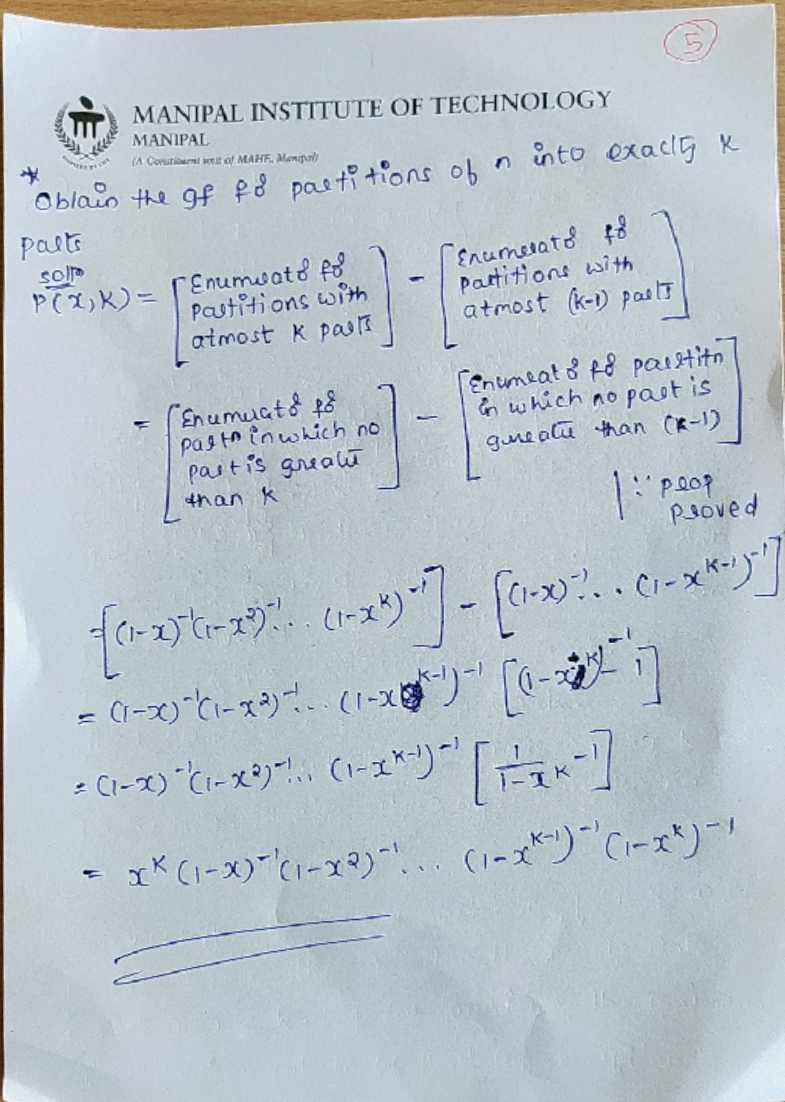 5
MANIPAL INSTITUTE OF TECHNOLOGY
MANIPAL
(A Constituent unit of MAHE, Manipal)
* Obtain the gf for partitions of n into exactly k
parts
soln
P(x,k) = [Enumerator for partitions with atmost k parts] - [Enumerator for partitions with atmost (k-1) parts]
= [Enumerator for partn in which no part is greater than k] - [Enumerator for partitn in which no part is greater than (k-1)]
| ∵ prop proved
= [(1-x)⁻¹(1-x²)⁻¹... (1-xᵏ)⁻¹] - [(1-x)⁻¹... (1-xᵏ⁻¹)⁻¹]
= (1-x)⁻¹(1-x²)⁻¹... (1-xᵏ⁻¹)⁻¹ [(1-xᵏ)⁻¹ - 1]
= (1-x)⁻¹(1-x²)⁻¹... (1-xᵏ⁻¹)⁻¹ [1/(1-xᵏ) - 1]
= xᵏ (1-x)⁻¹(1-x²)⁻¹... (1-xᵏ⁻¹)⁻¹ (1-xᵏ)⁻¹